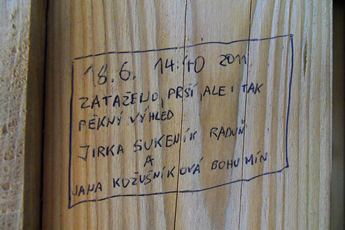 18.6. 14:40 2011
ZATAŽENO, PRŠÍ, ALE I TAK
PĚKNÝ VÝHLED
JIRKA SUKENÍK RADUŇ
A
JANA KUŽUŠNÍKOVÁ BOHUMÍN